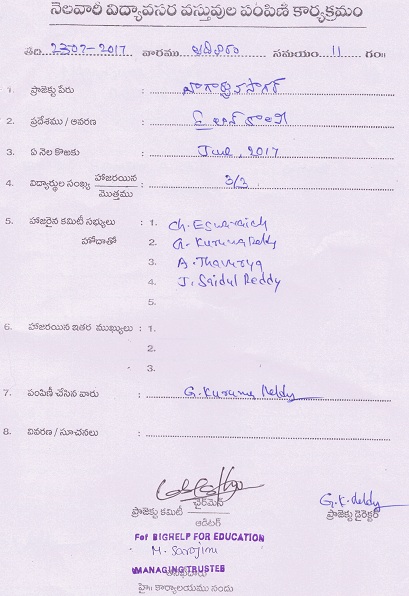 నెలవారీ విద్యావసర వస్తువుల పంపిణి కార్యక్రమం
తేది. 2307-2017 వారము ఆదివారం సమయం 11 గం॥
1. ప్రాజెక్టు పేరు : నాగార్జున సాగర్
2. ప్రదేశము / ఆవరణ :
3. ఏ నెల కొఱకు : June, 2017
4. విద్యార్థుల సంఖ్య హాజరయిన / మొత్తము : 3/3
5. హాజరైన కమిటీ సభ్యులు : 1. Ch. Eswaraich
హోదాతో 2. G. Kuruma Reddy
3. A. Thavurya
4. J. Saidul Reddy
5.
6. హాజరయిన ఇతర ముఖ్యులు : 1.
2.
3.
7. పంపిణీ చేసిన వారు : G. Kuruma Reddy
8. వివరణ / సూచనలు :
ప్రాజెక్టు కమిటీ చైర్‌మెన్ / ఆడిటర్
G.K. Reddy
ప్రాజెక్టు డైరెక్టర్
For BIGHELP FOR EDUCATION
M. Sarojini
MANAGING TRUSTEE
హై॥ కార్యాలయము నందు